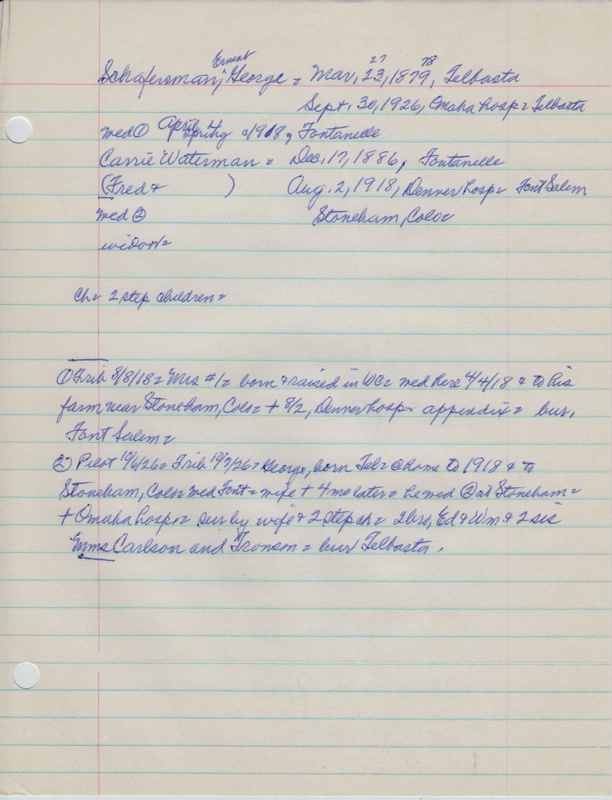 Ernest
27 78
Schafersman, George = Mar, 23, 1879, Telbasta
Sept, 30, 1926, Omaha hosp = Telbasta
med ① April 4 1918, Fontanelle
Carrie Waterman = Dec, 17, 1886, Fontanelle
(Fred + ) Aug. 2, 1918, Denver hosp = Font Salem
med ② Stoneham, Colo=
widow=
Ch= 2 step children=
① Trib 8/8/18 = Mrs #1 = born & raised in WC = med here 4/4/18 & to his
farm near Stoneham, Colo = + 8/2, Denver hosp = appendix = bur,
Font Salem =
② Pilot 10/6/26 = Trib 10/7/26 = George, born Tel = @ home to 1918 & to
Stoneham, Colo= med Font = wife + 4 mo later = he med ② at Stoneham =
+ Omaha hosp = sur by wife & 2 step ch = 2 brs, Ed & Wm & 2 sis
Mmes Carlson and Tronson = bur Telbasta.